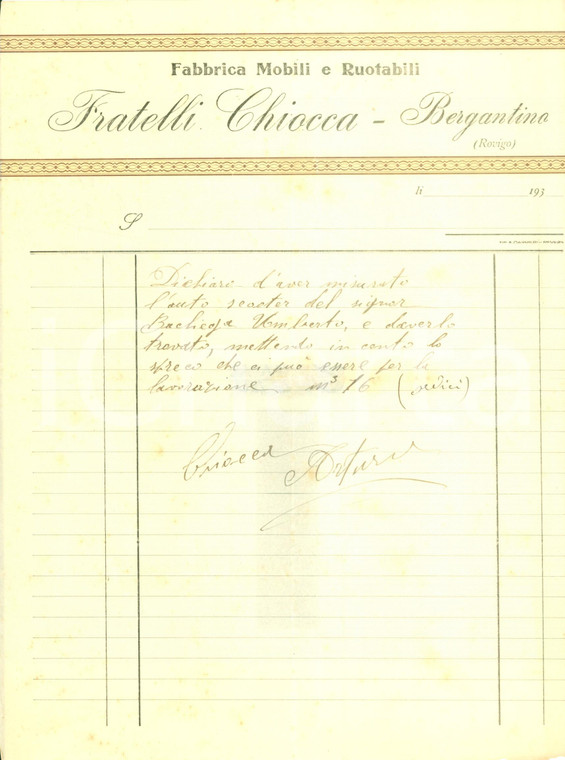 Fabbrica Mobili e Ruotabili
Fratelli Chiocca - Bergantino
(Rovigo)
li 193
S
Dichiaro d'aver misurato
l'auto scooter del signor
Bachiega Umberto, e daverlo
trovato, mettendo in conto lo
spreco che ci può essere per la
lavorazione m³ 16 (sedici)
Chiocca Arturo